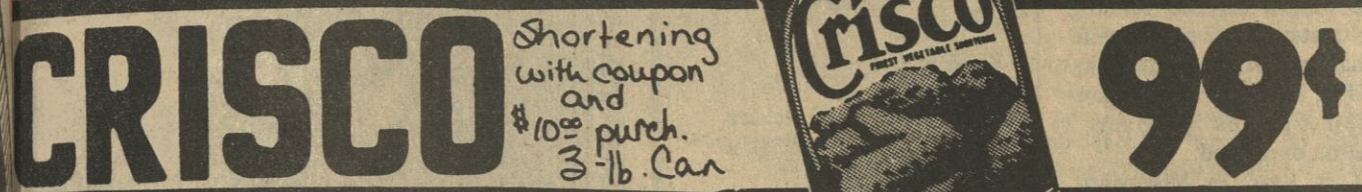 CRISCO
Shortening
with coupon
and
$10⁰⁰ purch.
3-lb. Can
Crisco
FINEST VEGETABLE SHORTENING
99¢